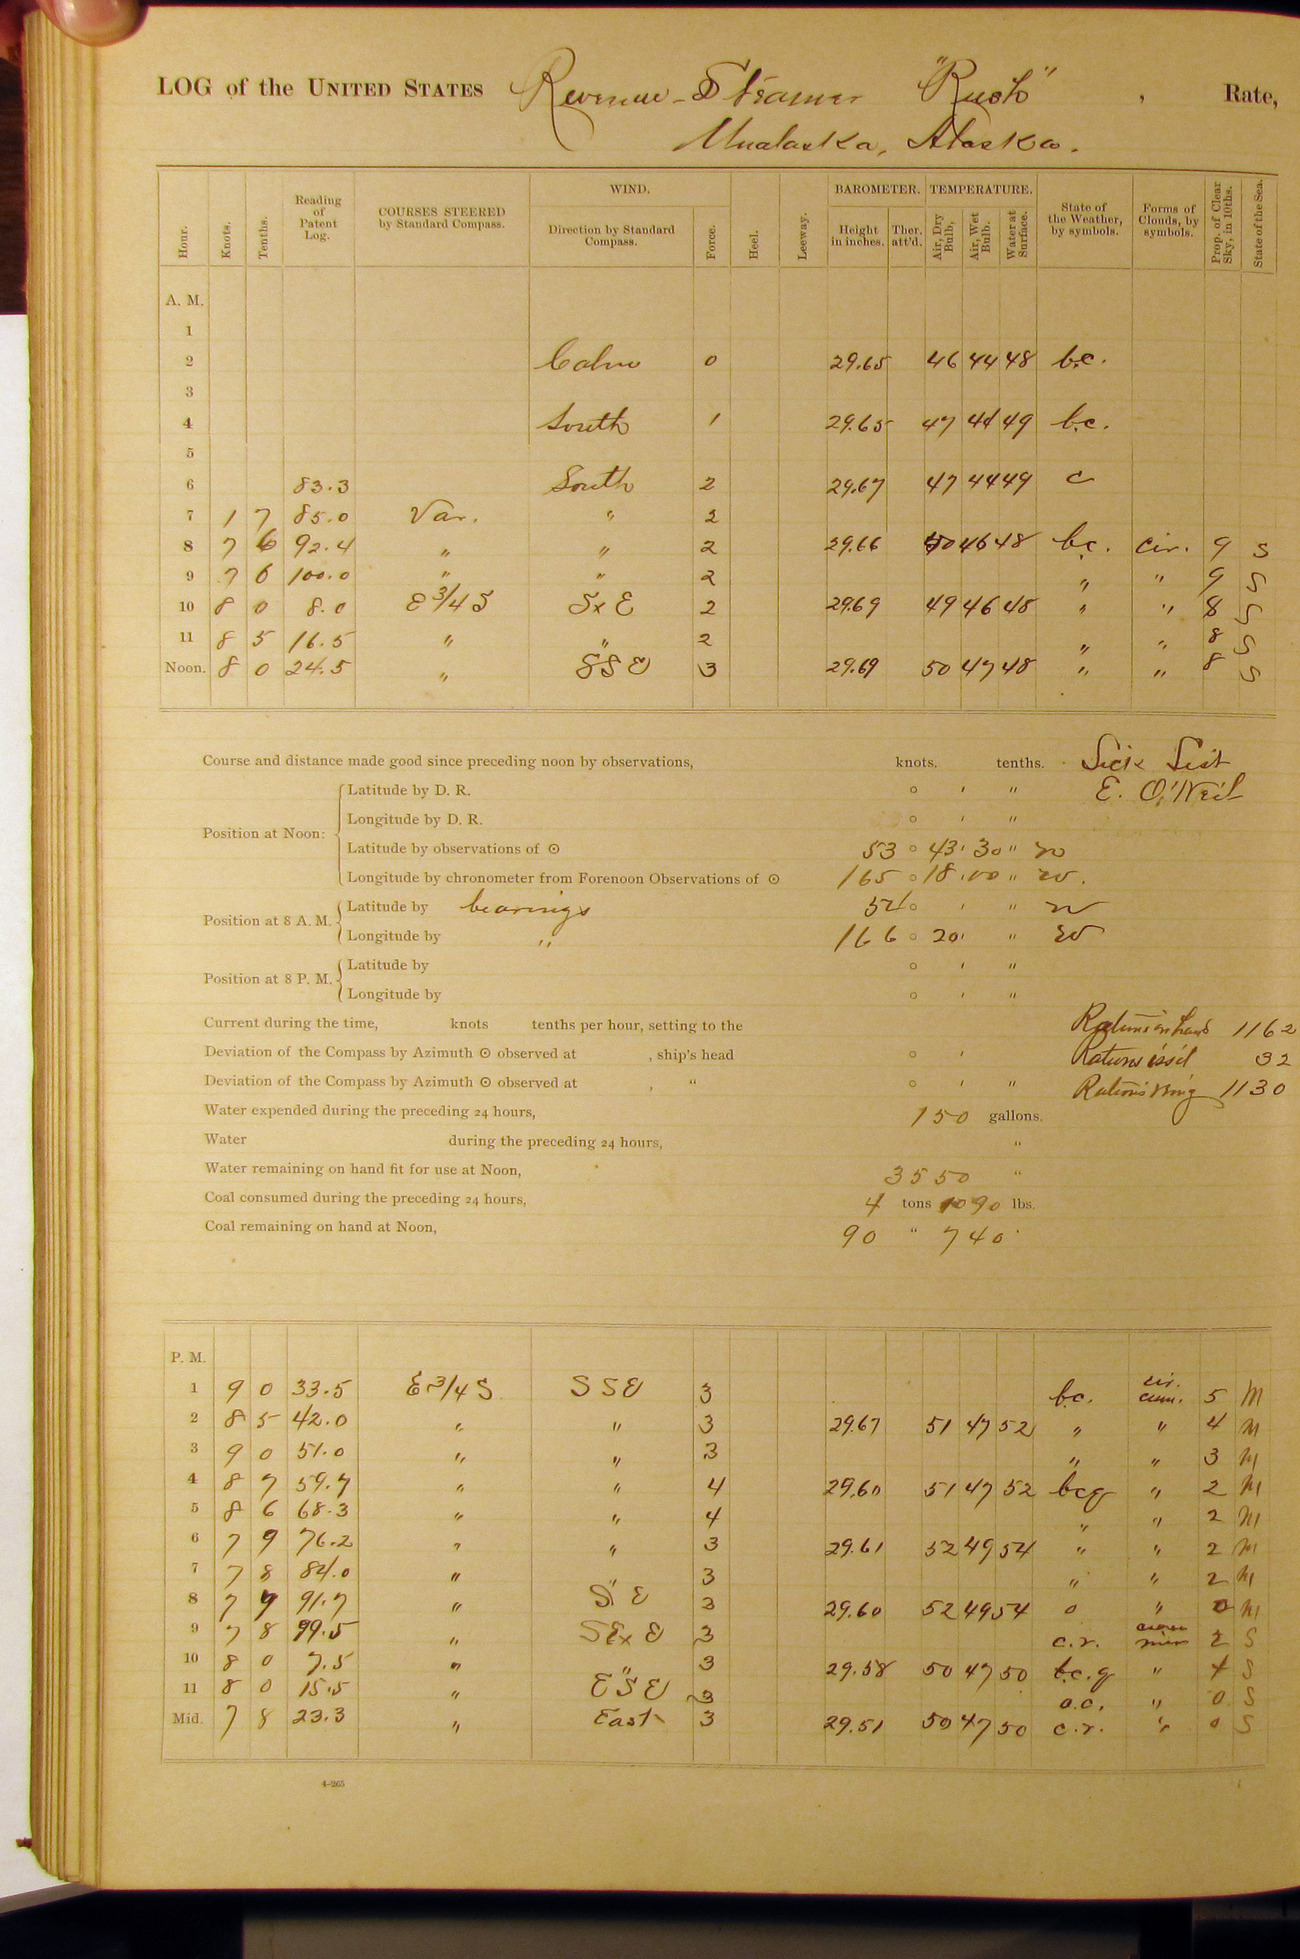 LOG of the UNITED STATES Revenue-Steamer "Rush", Rate,
Unalaska, Alaska.
Hour. Knots. Tenths. Reading of Patent Log. COURSES STEERED by Standard Compass. WIND. Direction by Standard Compass. Force. Heel. Leeway. BAROMETER. Height in inches. Ther. att'd. TEMPERATURE. Air, Dry Bulb. Air, Wet Bulb. Water at Surface. State of the Weather, by symbols. Forms of Clouds, by symbols. Prop. of Clear Sky, in 10ths. State of the Sea.
A. M.
1
2 Calm 0 29.65 46 44 48 b.c.
3
4 South 1 29.65 47 44 49 b.c.
5
6 83.3 South 2 29.67 47 44 49 c
7 1 7 85.0 Var. " 2
8 7 6 92.4 " " 2 29.66 50 46 48 b.c. cir. 9 S
9 7 6 100.0 " " 2 " " 9 S
10 8 0 8.0 E 3/4 S SxE 2 29.69 49 46 48 " " 8 S
11 8 5 16.5 " " 2 " " 8 S
Noon. 8 0 24.5 " SSE 3 29.69 50 47 48 " " 8 S
Course and distance made good since preceding noon by observations, knots. tenths. Sick List
Latitude by D. R. ° ' " E. O'Neil
Position at Noon: Longitude by D. R. ° ' "
Latitude by observations of ⊙ 53 ° 43 ' 30 " N
Longitude by chronometer from Forenoon Observations of ⊙ 165 ° 18 ' 00 " W.
Position at 8 A. M. Latitude by bearings 54 ° ' " N
Longitude by " 166 ° 20 ' " W
Position at 8 P. M. Latitude by ° ' "
Longitude by ° ' "
Current during the time, knots tenths per hour, setting to the Rations on hand 1162
Deviation of the Compass by Azimuth ⊙ observed at , ship's head ° ' Rations iss'd 32
Deviation of the Compass by Azimuth ⊙ observed at , " ° ' " Rations 1130
Water expended during the preceding 24 hours, 150 gallons.
Water during the preceding 24 hours, "
Water remaining on hand fit for use at Noon, 3550 "
Coal consumed during the preceding 24 hours, 4 tons 1090 lbs.
Coal remaining on hand at Noon, 90 " 740
P. M.
1 9 0 33.5 E 3/4 S SSE 3 b.c. cir. cum. 5 M
2 8 5 42.0 " " 3 29.67 51 47 52 " " 4 M
3 9 0 51.0 " " 3 " " 3 M
4 8 7 59.7 " " 4 29.60 51 47 52 bcq " 2 M
5 8 6 68.3 " " 4 " " 2 M
6 7 9 76.2 " " 3 29.61 52 49 54 " " 2 M
7 7 8 84.0 " " 3 " " 2 M
8 7 7 91.7 " SE 3 29.60 52 49 54 o " 0 M
9 7 8 99.5 " SExE 3 c.r. 2 S
10 8 0 7.5 " " 3 29.58 50 47 50 b.c.q " S
11 8 0 15.5 " ESE 3 o.c. " 0 S
Mid. 7 8 23.3 " East 3 29.51 50 47 50 c.r. " 0 S
4-265